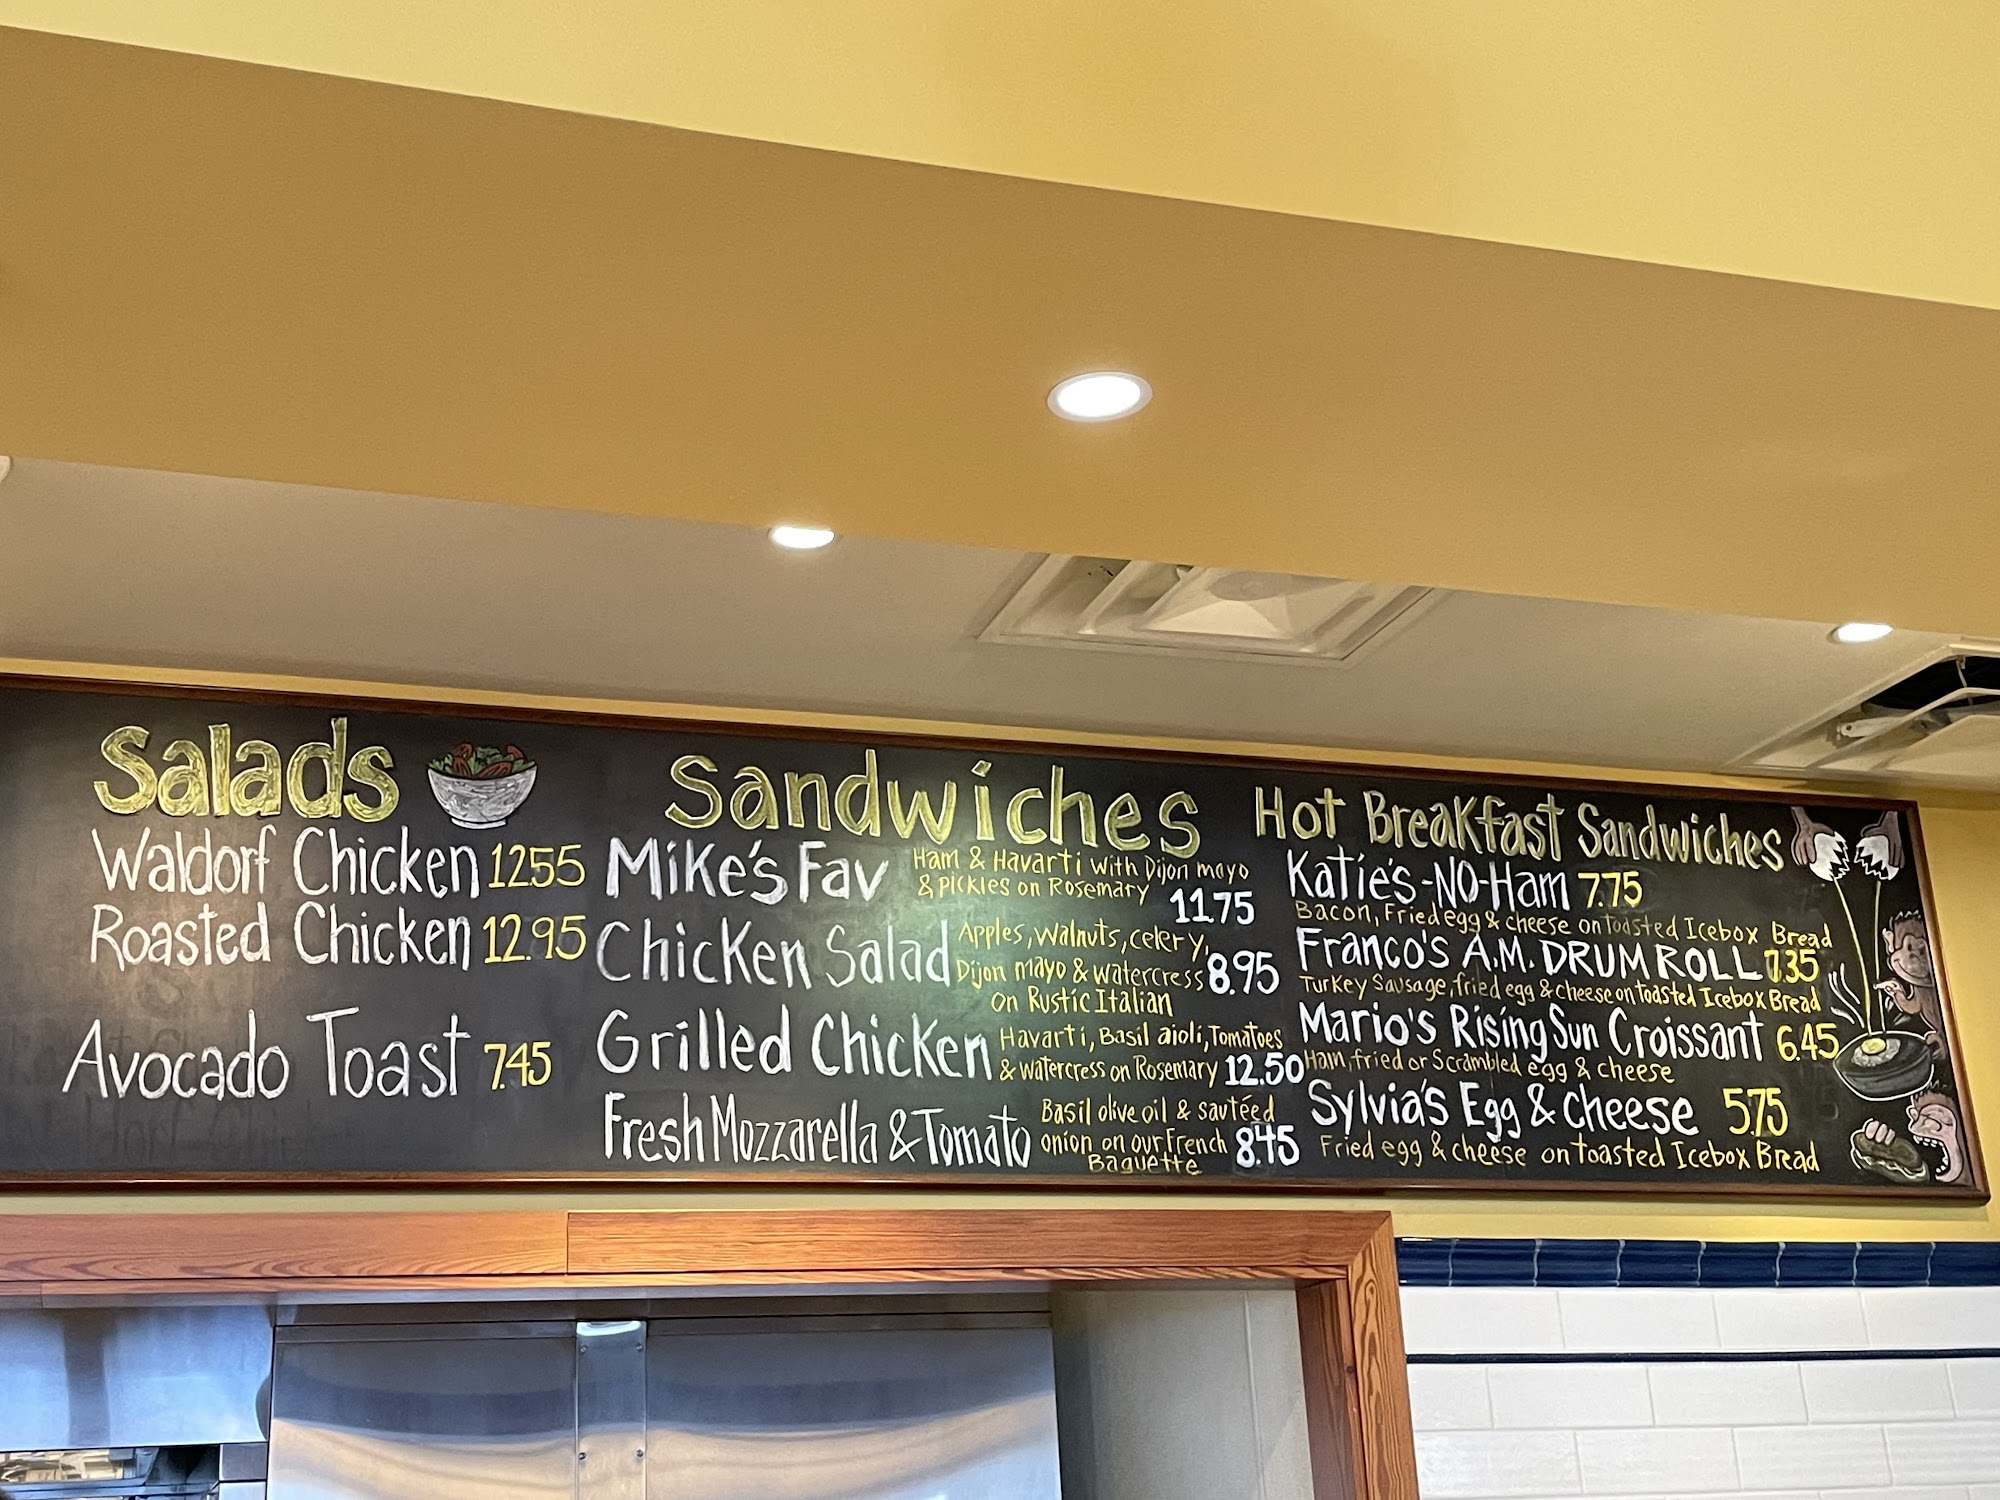 Salads
Waldorf Chicken 12.55
Roasted Chicken 12.95
Avocado Toast 7.45
Sandwiches
Mike's Fav
Ham & Havarti with Dijon mayo
& Pickles on Rosemary
11.75
Chicken Salad
Apples, walnuts, celery,
Dijon mayo & watercress
on Rustic Italian
8.95
Grilled Chicken
Havarti, Basil aioli, Tomatoes
& watercress on Rosemary 12.50
Fresh Mozzarella & Tomato
Basil olive oil & sautéed
onion on our French
Baguette
8.45
Hot Breakfast Sandwiches
Katie's-NO-Ham 7.75
Bacon, Fried egg & cheese on toasted Icebox Bread
Franco's A.M. DRUM ROLL 7.35
Turkey Sausage, fried egg & cheese on toasted Icebox Bread
Mario's Rising Sun Croissant 6.45
Ham, fried or Scrambled egg & cheese
Sylvia's Egg & cheese 5.75
Fried egg & cheese on toasted Icebox Bread